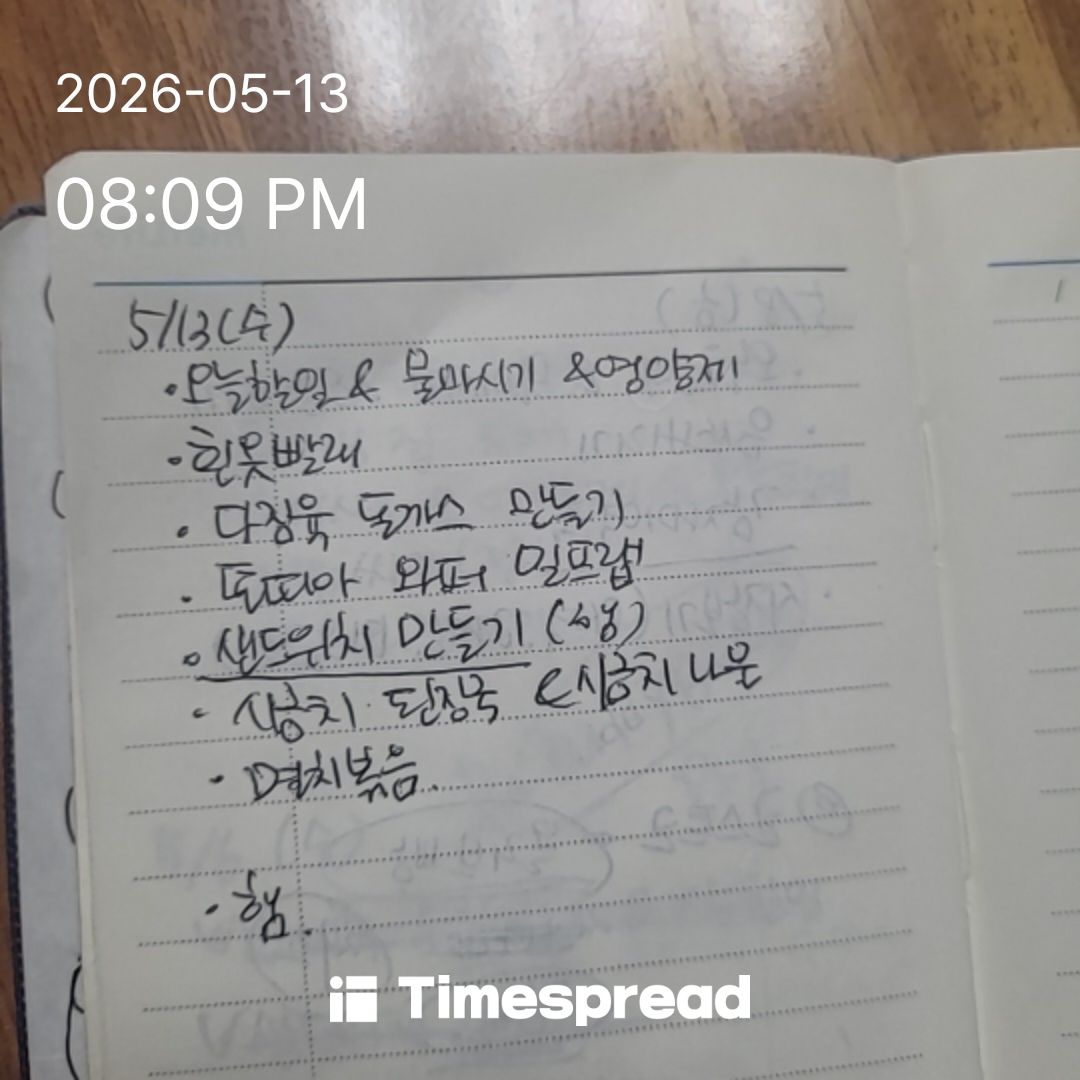 2026-05-13
08:09 PM
5/13(수)
·오늘할일 & 물마시기 &영양제
·흰옷빨래
· 다짐육 돈까스 만들기
· 또띠아 와퍼 밀프랩
· 샌드위치 만들기 (생)
· 시금치 된장국 & 시금치 나물
· 멸치볶음.
· 햄.
Timespread